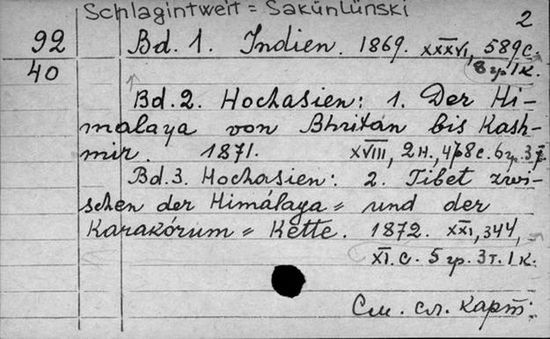 Schlagintweit = Sakünlünski
2
92
40
Bd. 1. Indien. 1869. XXXVI, 589 с.
8 гр. 1 к.
Bd. 2. Hochasien: 1. Der Hi-
malaya von Bhritan bis Kash-
mir. 1871. XVIII, 2 н., 478 с. 6 гр. 3
Bd. 3. Hochasien: 2. Tibet zwi-
schen der Himálaya = und der
Karakórum = Kette. 1872. XXI, 344,
XI. с. 5 гр. 3 т. 1 к.
См. сл. карт.